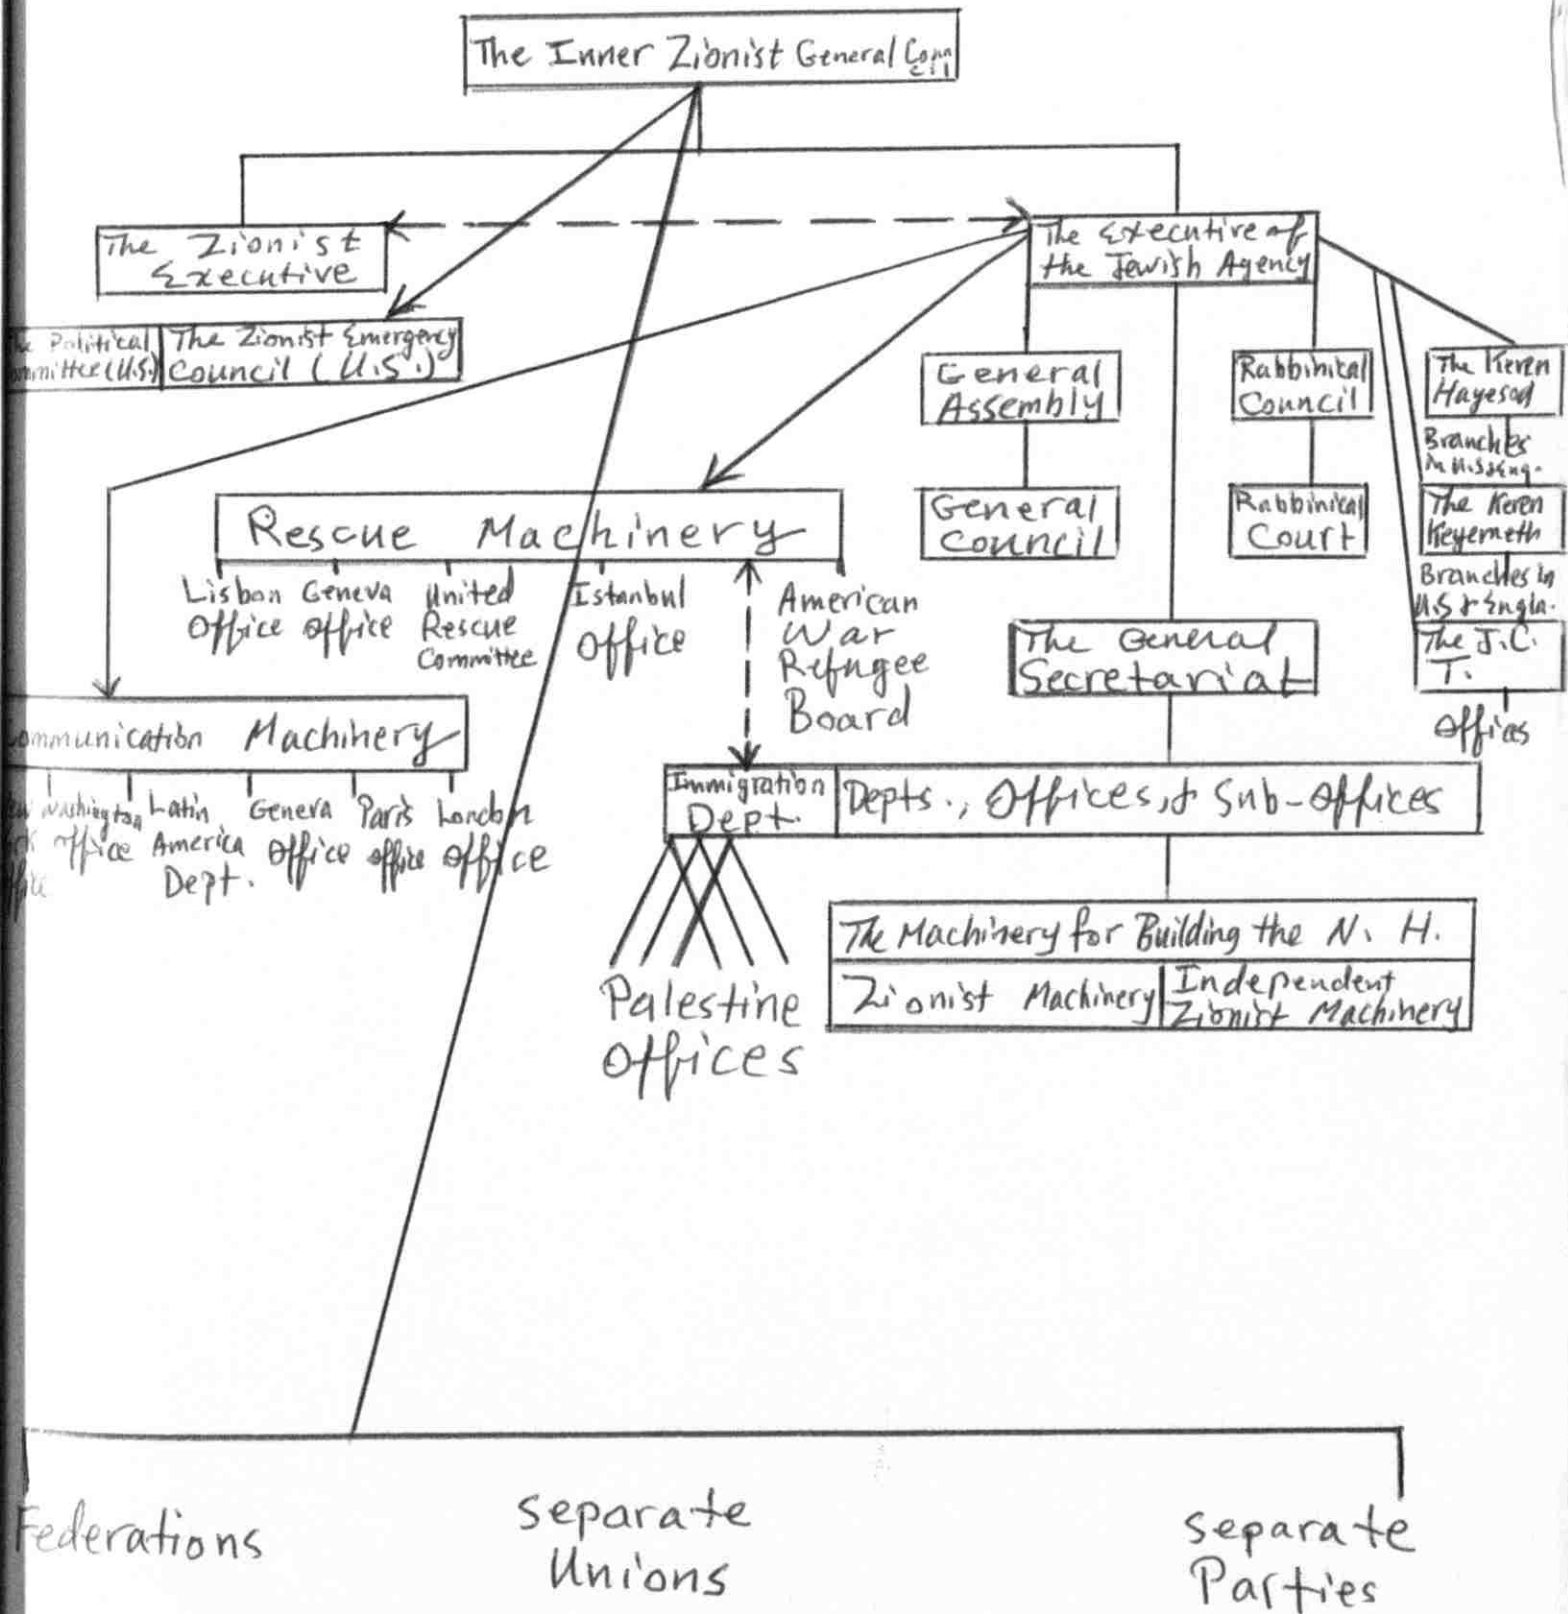 The Inner Zionist General Coun
cil
The Zionist
Executive
The Executive of
the Jewish Agency
Political
(U.S.)
The Zionist Emergency
Council (U.S.)
General
Assembly
Rabbinical
Council
The Keren
Hayesod
Branches
in U.S & Eng.
General
Council
Rabbinical
Court
The Keren
Keyemeth
Branches in
U.S & Engla.
The J.C.
T.
Offices
Rescue Machinery
Lisbon
Office
Geneva
Office
United
Rescue
Committee
Istanbul
Office
American
War
Refugee
Board
The General
Secretariat
Machinery
Washington
Office
Latin
America
Dept.
Geneva
Office
Paris
Office
London
Office
Immigration
Dept.
Depts., Offices, & Sub-Offices
Palestine
Offices
The Machinery for Building the N. H.
Zionist Machinery
Independent
Zionist Machinery
Federations
separate
Unions
separate
Parties